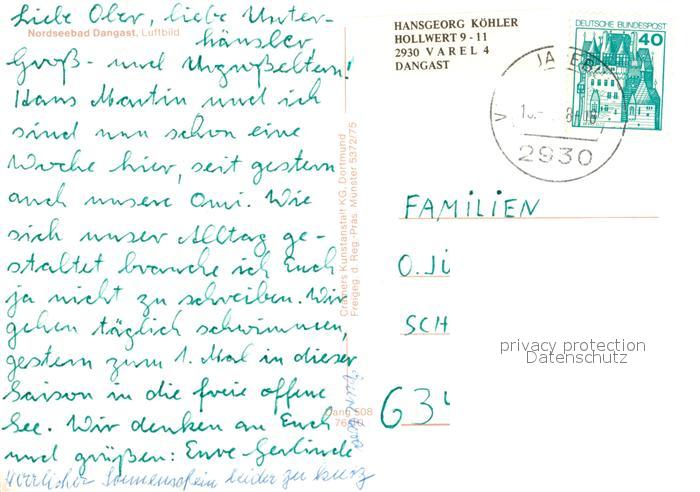 Liebe Ober, liebe Unter-
Nordseebad Dangast, Luftbild
häusler
Groß- und Urgroßeltern!
Hans Martin und ich
sind nun schon eine
Woche hier, seit gestern
auch unsere Omi. Wie
sich unser Alltag ge-
staltet brauche ich Euch
ja nicht zu schreiben. Wir
gehen täglich schwimmen,
gestern zum 1. Mal in dieser
Saison in die freie offene
See. Wir denken an Euch
und grüßen: Eure Gerlinde
Herrlicher Sonnenschein leider zu kurz
Cramers Kunstanstalt KG, Dortmund
Freigeg. d. Reg.-Präs. Münster 5372/75
Dang 508
HANSGEORG KÖHLER
HOLLWERT 9 - 11
2930 VAREL 4
DANGAST
DEUTSCHE BUNDESPOST
40
2930
FAMILIEN
O.
SCH
634
privacy protection
Datenschutz